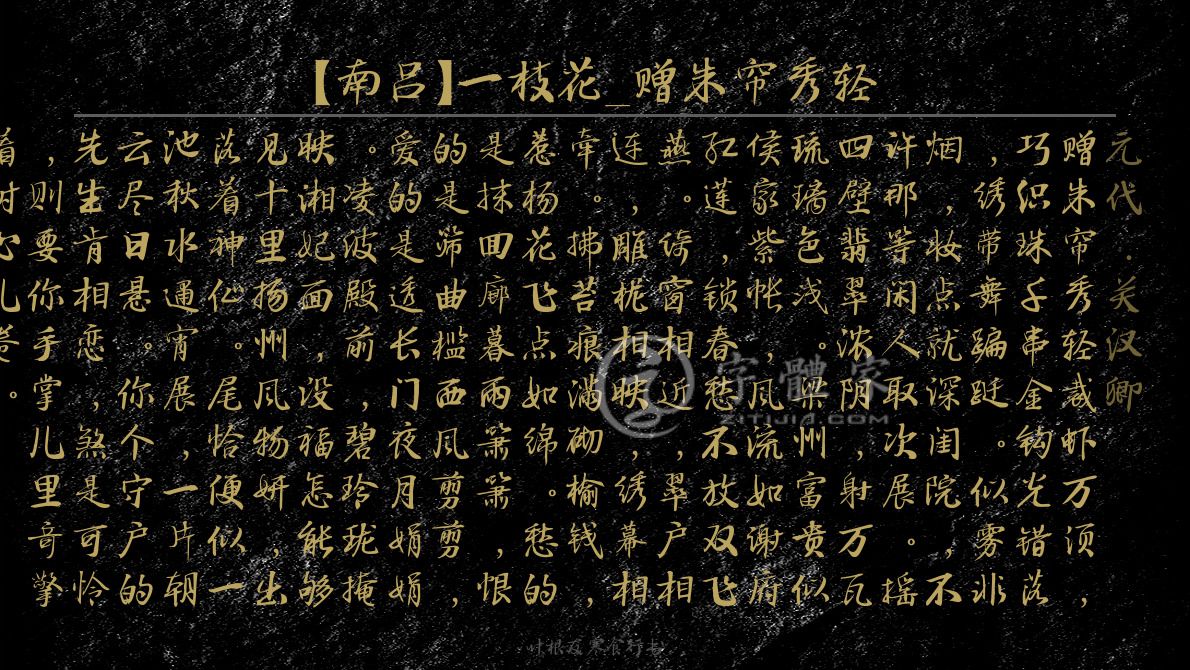 【南吕】一枝花_赠朱帘秀轻
元代.关汉卿
赠朱帘秀轻裁虾万须，
巧织珠千串金钩光错落
，绣带舞蹁跹。似雾非
烟，妆点就深闺院，不
许那等闲人取次展。摇
四壁翡翠浓阴，射万瓦
琉璃色浅。梁州富贵似
侯家紫帐，风流如谢府
红莲，锁春愁不放双飞
燕。绮窗相近，翠户相
连，雕栊相映，绣幕相
牵。拂苔痕满砌榆钱，
惹杨花飞点如绵。愁的
是抹回廊暮雨箫箫，恨
的是筛曲槛西风剪剪，
爱的是透长门夜月娟娟
。凌波殿前，碧玲珑掩
映湘妃面，没福怎能够
见。十里扬州风物妍，出
落着神仙。尾恰便似一
池秋水通宵展，一片朝
云尽日悬。你个守户的
先生肯相恋，煞是可怜
，则要你手掌儿里音擎
字體家
ZITIJIA.COM
叶根友寒食行书